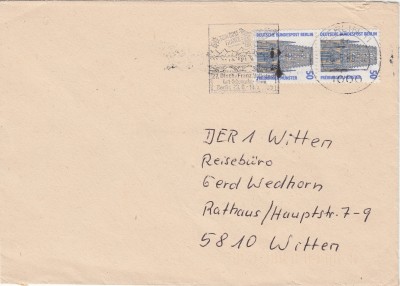 DEUTSCHE BUNDESPOST BERLIN DEUTSCHE BUNDESPOST BERLIN
50 50
DER 1 Witten
Reisebüro
Gerd Wedhorn
Rathaus/Hauptstr. 7-9
5810 Witten